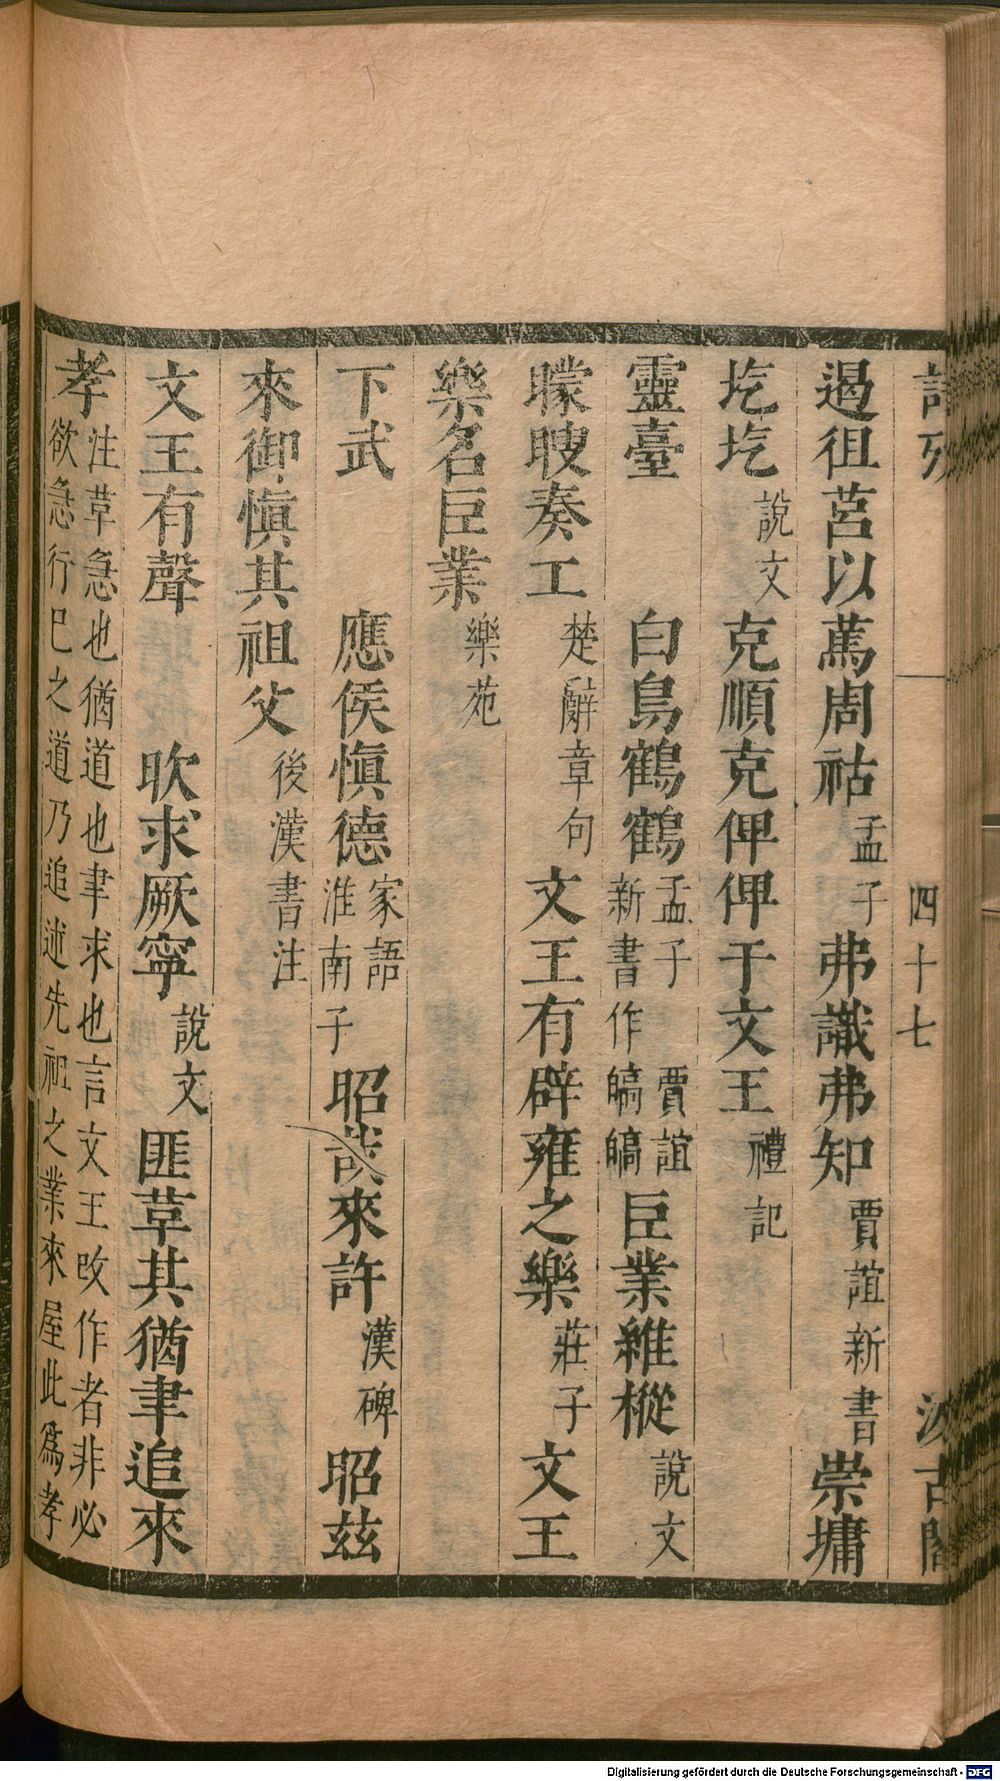 詩攷 四十七 汲古閣
遏徂莒以篤周祜孟子弗識弗知賈誼新書崇墉
圪圪說文克順克俾俾于文王禮記
靈臺 白鳥鶴鶴孟子 賈誼新書作皜皜巨業維樅說文
矇瞍奏工楚辭章句文王有辟雍之樂莊子文王
樂名巨業樂苑
下武 應侯慎德家語淮南子昭哉來許漢碑昭茲
來御慎其祖父後漢書注
文王有聲 欥求厥寧說文匪草其猶聿追來
孝注草急也猶道也聿求也言文王改作者非必
欲急行巳之道乃追述先祖之業來屋此爲孝
Digitalisierung gefördert durch die Deutsche Forschungsgemeinschaft - DFG